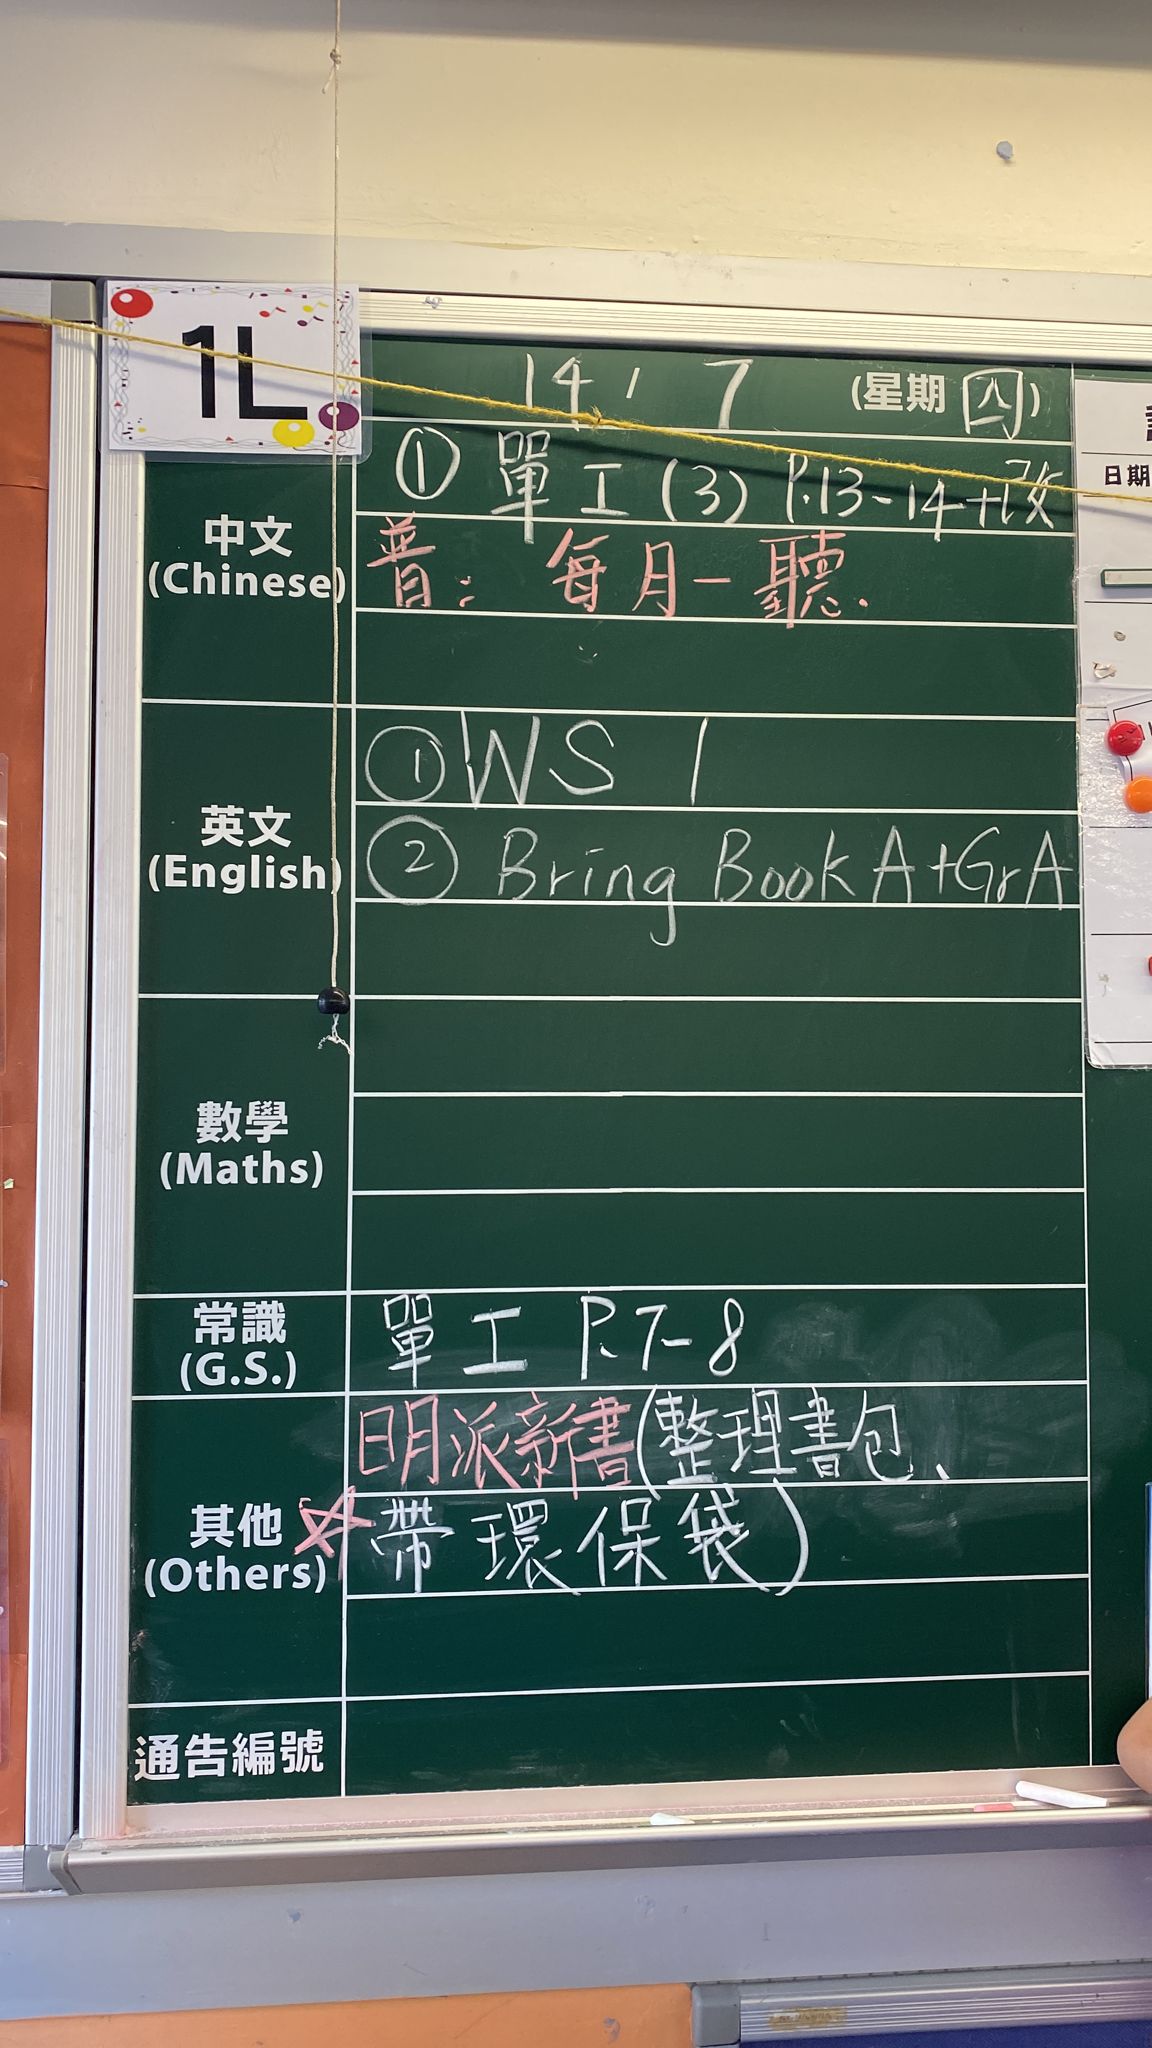 1L
14 / 7 (星期 四)
中文
(Chinese)
① 單工(3) P.13-14+改
普: 每月一聽.
英文
(English)
① WS 1
② Bring Book A+Gr A
數學
(Maths)
常識
(G.S.)
單工 P.7-8
其他
(Others)
明派新書(整理書包、
☆帶環保袋)
通告編號
日期